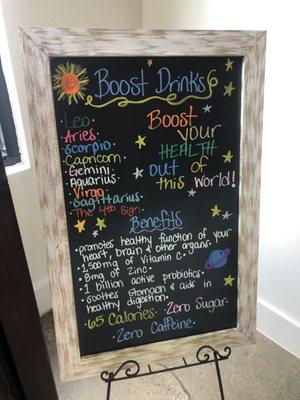 Boost Drinks
Leo
Aries
Scorpio
Capricorn
Gemini
Aquarius
Virgo
Sagittarius
The 4th Sign
Boost
your
HEALTH
out of
this World!
Benefits
• promotes healthy function of your
heart, brain & other organs.
• 1,500mg of Vitamin C.
• 8mg of Zinc.
• 1 billion active probiotics.
• soothes stomach & aids in
healthy digestion.
65 Calories. Zero Sugar.
Zero Caffeine.